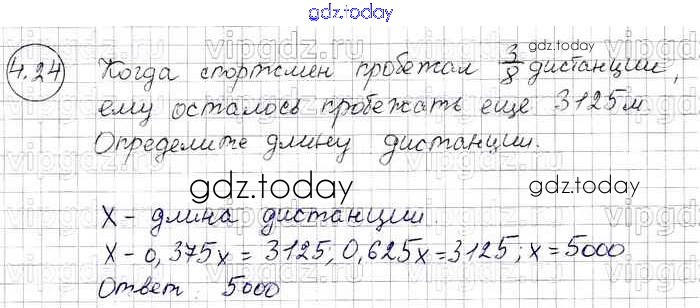 gdz.today
4.24
Когда спортсмен пробежал 3/8 дистанции,
gdz.today
ему осталось пробежать еще 3125м.
Определите длину дистанции.
gdz.today
gdz.today
x - длина дистанции.
x - 0,375x = 3125; 0,625x = 3125; x = 5000
Ответ 5000